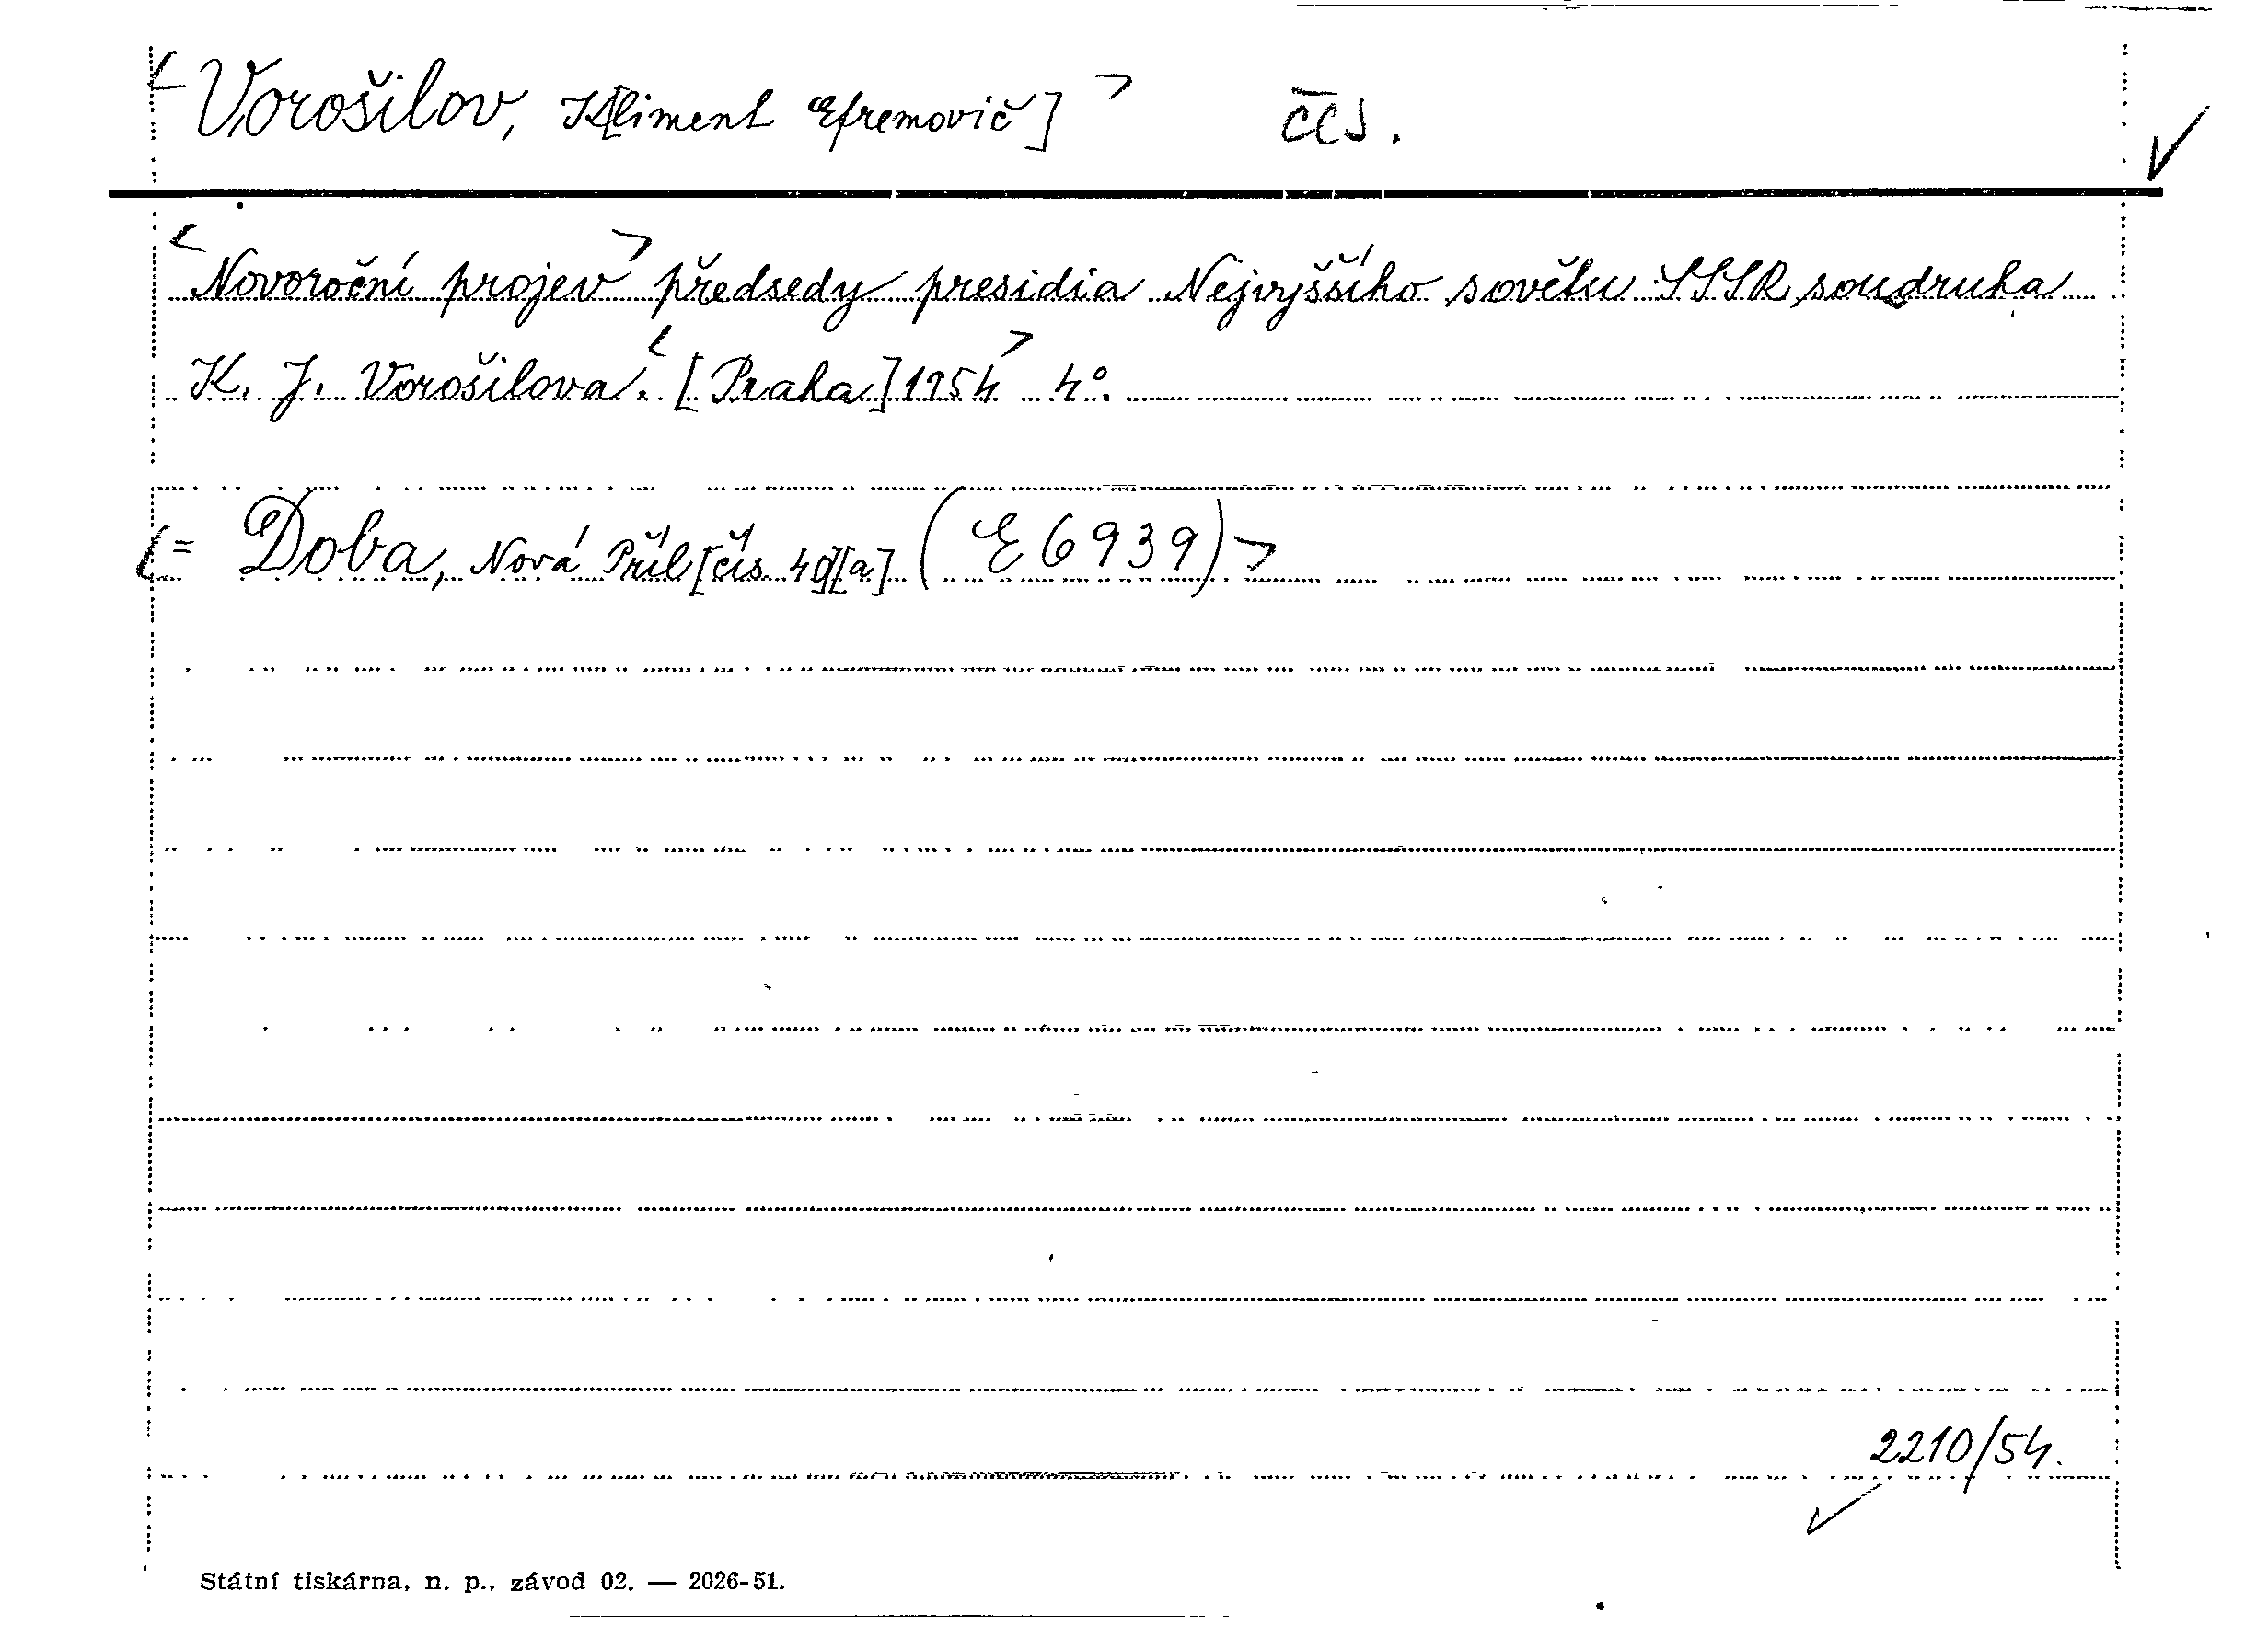 <Vorošilov, K[liment Efremovič]> čes.
<Novoroční projev> předsedy presidia Nejvyššího sovětu SSSR soudruha
K. J. Vorošilova. <[Praha] 1954> 4°.
<= Doba, Nová Příl[čís. 4][a] (E 6939)>
2210/54.
Státní tiskárna, n. p., závod 02. — 2026-51.